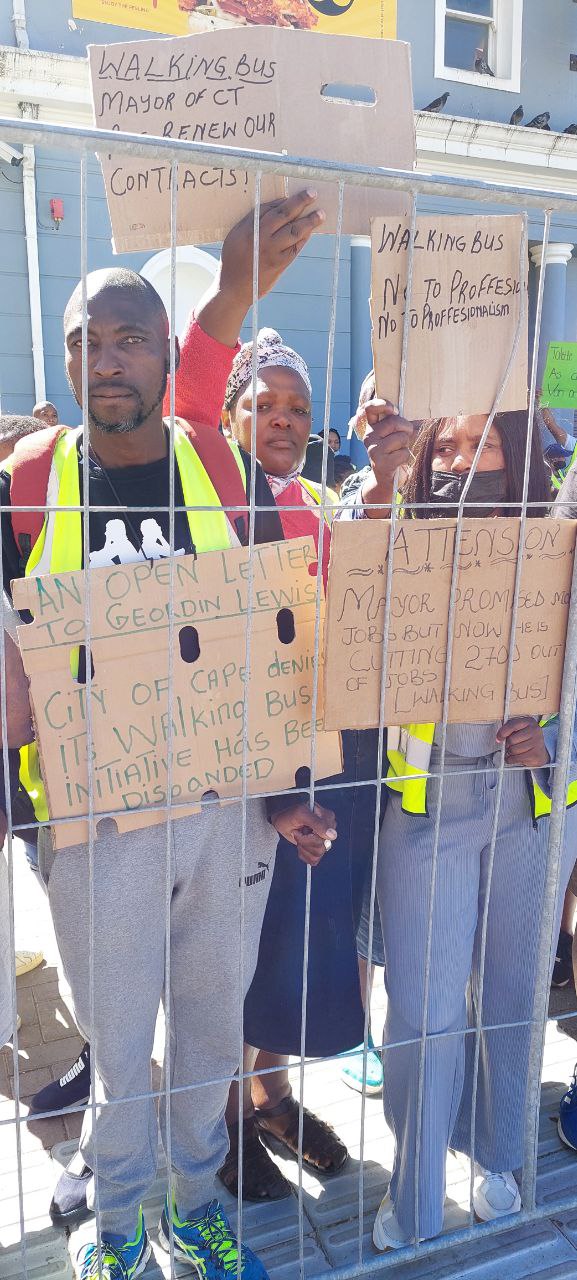 WALKING BUS
MAYOR OF CT
RENEW OUR
CONTRACTS!
WALKING BUS
NO TO PROFFESIO
NO TO PROFFESIONALISM
AN OPEN LETTER
TO GEORDIN LEWIS
CITY OF CAPE denies
ITS WALKING BUS
INITIATIVE HAS BEE
DISBANDED
ATTENSION
MAYOR PROMISED MO
JOBS BUT NOW HE IS
CUTTING 2700 OUT
OF JOBS
[WALKING BUS]
PUMA
PUMA